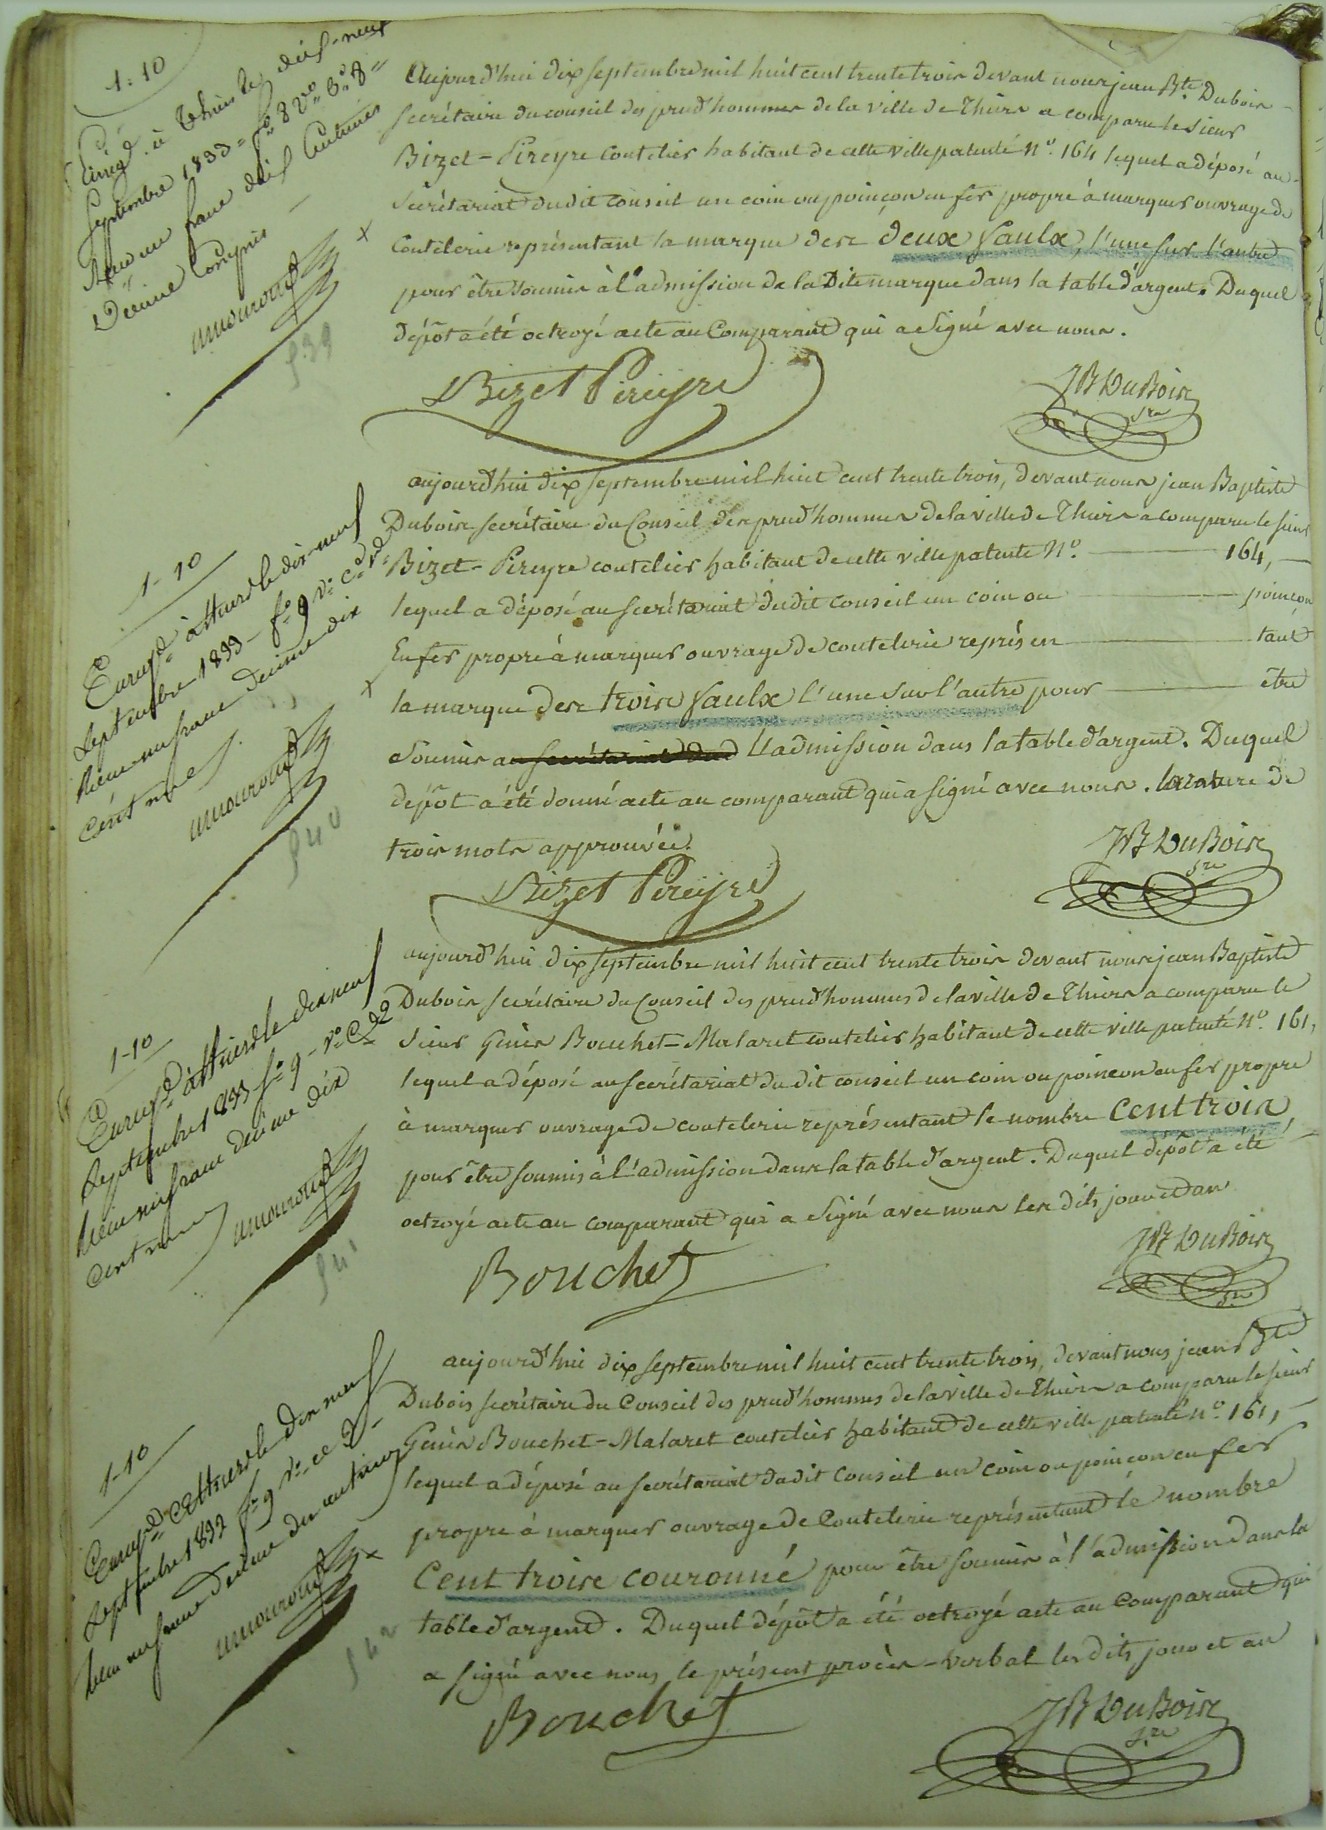 1-10
Enreg. à Thiers le dix-neuf
Septembre 1833 = f° 8 v° C 8
Reçu un franc dix centimes
Décime Compris
amouroux
f 39
aujourd'hui dix septembre mil huit cent trente trois devant nous jean Bte Dubois
secrétaire du conseil des prud'hommes de la ville de Thiers a comparu le sieur
Bizet-Pireyre coutelier habitant de cette ville patenté N°. 164 lequel a déposé au
secrétariat dudit conseil un coin ou poinçon en fer propre à marquer ouvrage de
coutelerie représentant la marque des deux faulx, l'une sur l'autre
pour être soumis à l'admission de la Dite marque dans la table d'argent. Duquel
dépôt a été octroyé acte au Comparant qui a signé avec nous.
Bizet Pireyre
JB DuBois
sre
1-10
Enreg. à Thiers le dix-neuf
septembre 1833 - f° 9 v° C
Reçu un franc décime dix
centimes
amouroux
f 40
aujourd'hui dix septembre mil huit cent trente trois, devant nous jean Baptiste
Dubois secrétaire du Conseil des prud'hommes de la ville de Thiers a comparu le sieur
Bizet-Pireyre coutelier habitant de cette ville patenté N°. 164,
lequel a déposé au secrétariat dudit conseil un coin ou poinçon
en fer propre à marquer ouvrage de coutelerie représen tant
la marque des trois faulx l'une sur l'autre pour être
soumis au secrétariat dud L'admission dans la table d'argent. Duquel
dépôt a été donné acte au comparant qui a signé avec nous. la rature de
trois mots approuvée.
Bizet Pireyre
JB DuBois
sre
1-10
Enreg. à Thiers le dix neuf
septembre 1833 f° 9 - v° C 2
Reçu un franc décime dix
centimes
amouroux
f 41
aujourd'hui dix septembre mil huit cent trente trois devant nous jean Baptiste
Dubois secrétaire du Conseil des prud'hommes de la ville de Thiers a comparu le
sieur Genès Bouchet-Malaret coutelier habitant de cette ville patenté N°. 161,
lequel a déposé au secrétariat du dit conseil un coin ou poinçon en fer propre
à marquer ouvrage de coutelerie représentant le nombre Cent trois
pour être soumis à l'admission dans la table d'argent. Duquel dépôt a été
octroyé acte au comparant qui a signé avec nous les dits jour et an
Bouchet
JB DuBois
sre
1-10
Enreg. à Thiers le dix neuf
septembre 1833 f° 9 v°
Reçu un franc décime dix centimes
amouroux
f 42
aujourd'hui dix septembre mil huit cent trente trois, devant nous jean Bte
Dubois secrétaire du Conseil des prud'hommes de la ville de Thiers a comparu le sieur
Genès Bouchet-Malaret coutelier habitant de cette ville patenté n°. 161,
lequel a déposé au secrétariat dudit Conseil un coin ou poinçon en fer
propre à marquer ouvrage de Coutelerie représentant le nombre
Cent trois couronné pour être soumis à l'admission dans la
table d'argent. Duquel dépôt a été octroyé acte au Comparant qui
a signé avec nous le présent procès-verbal les dits jour et an
Bouchet
JB DuBois
sre